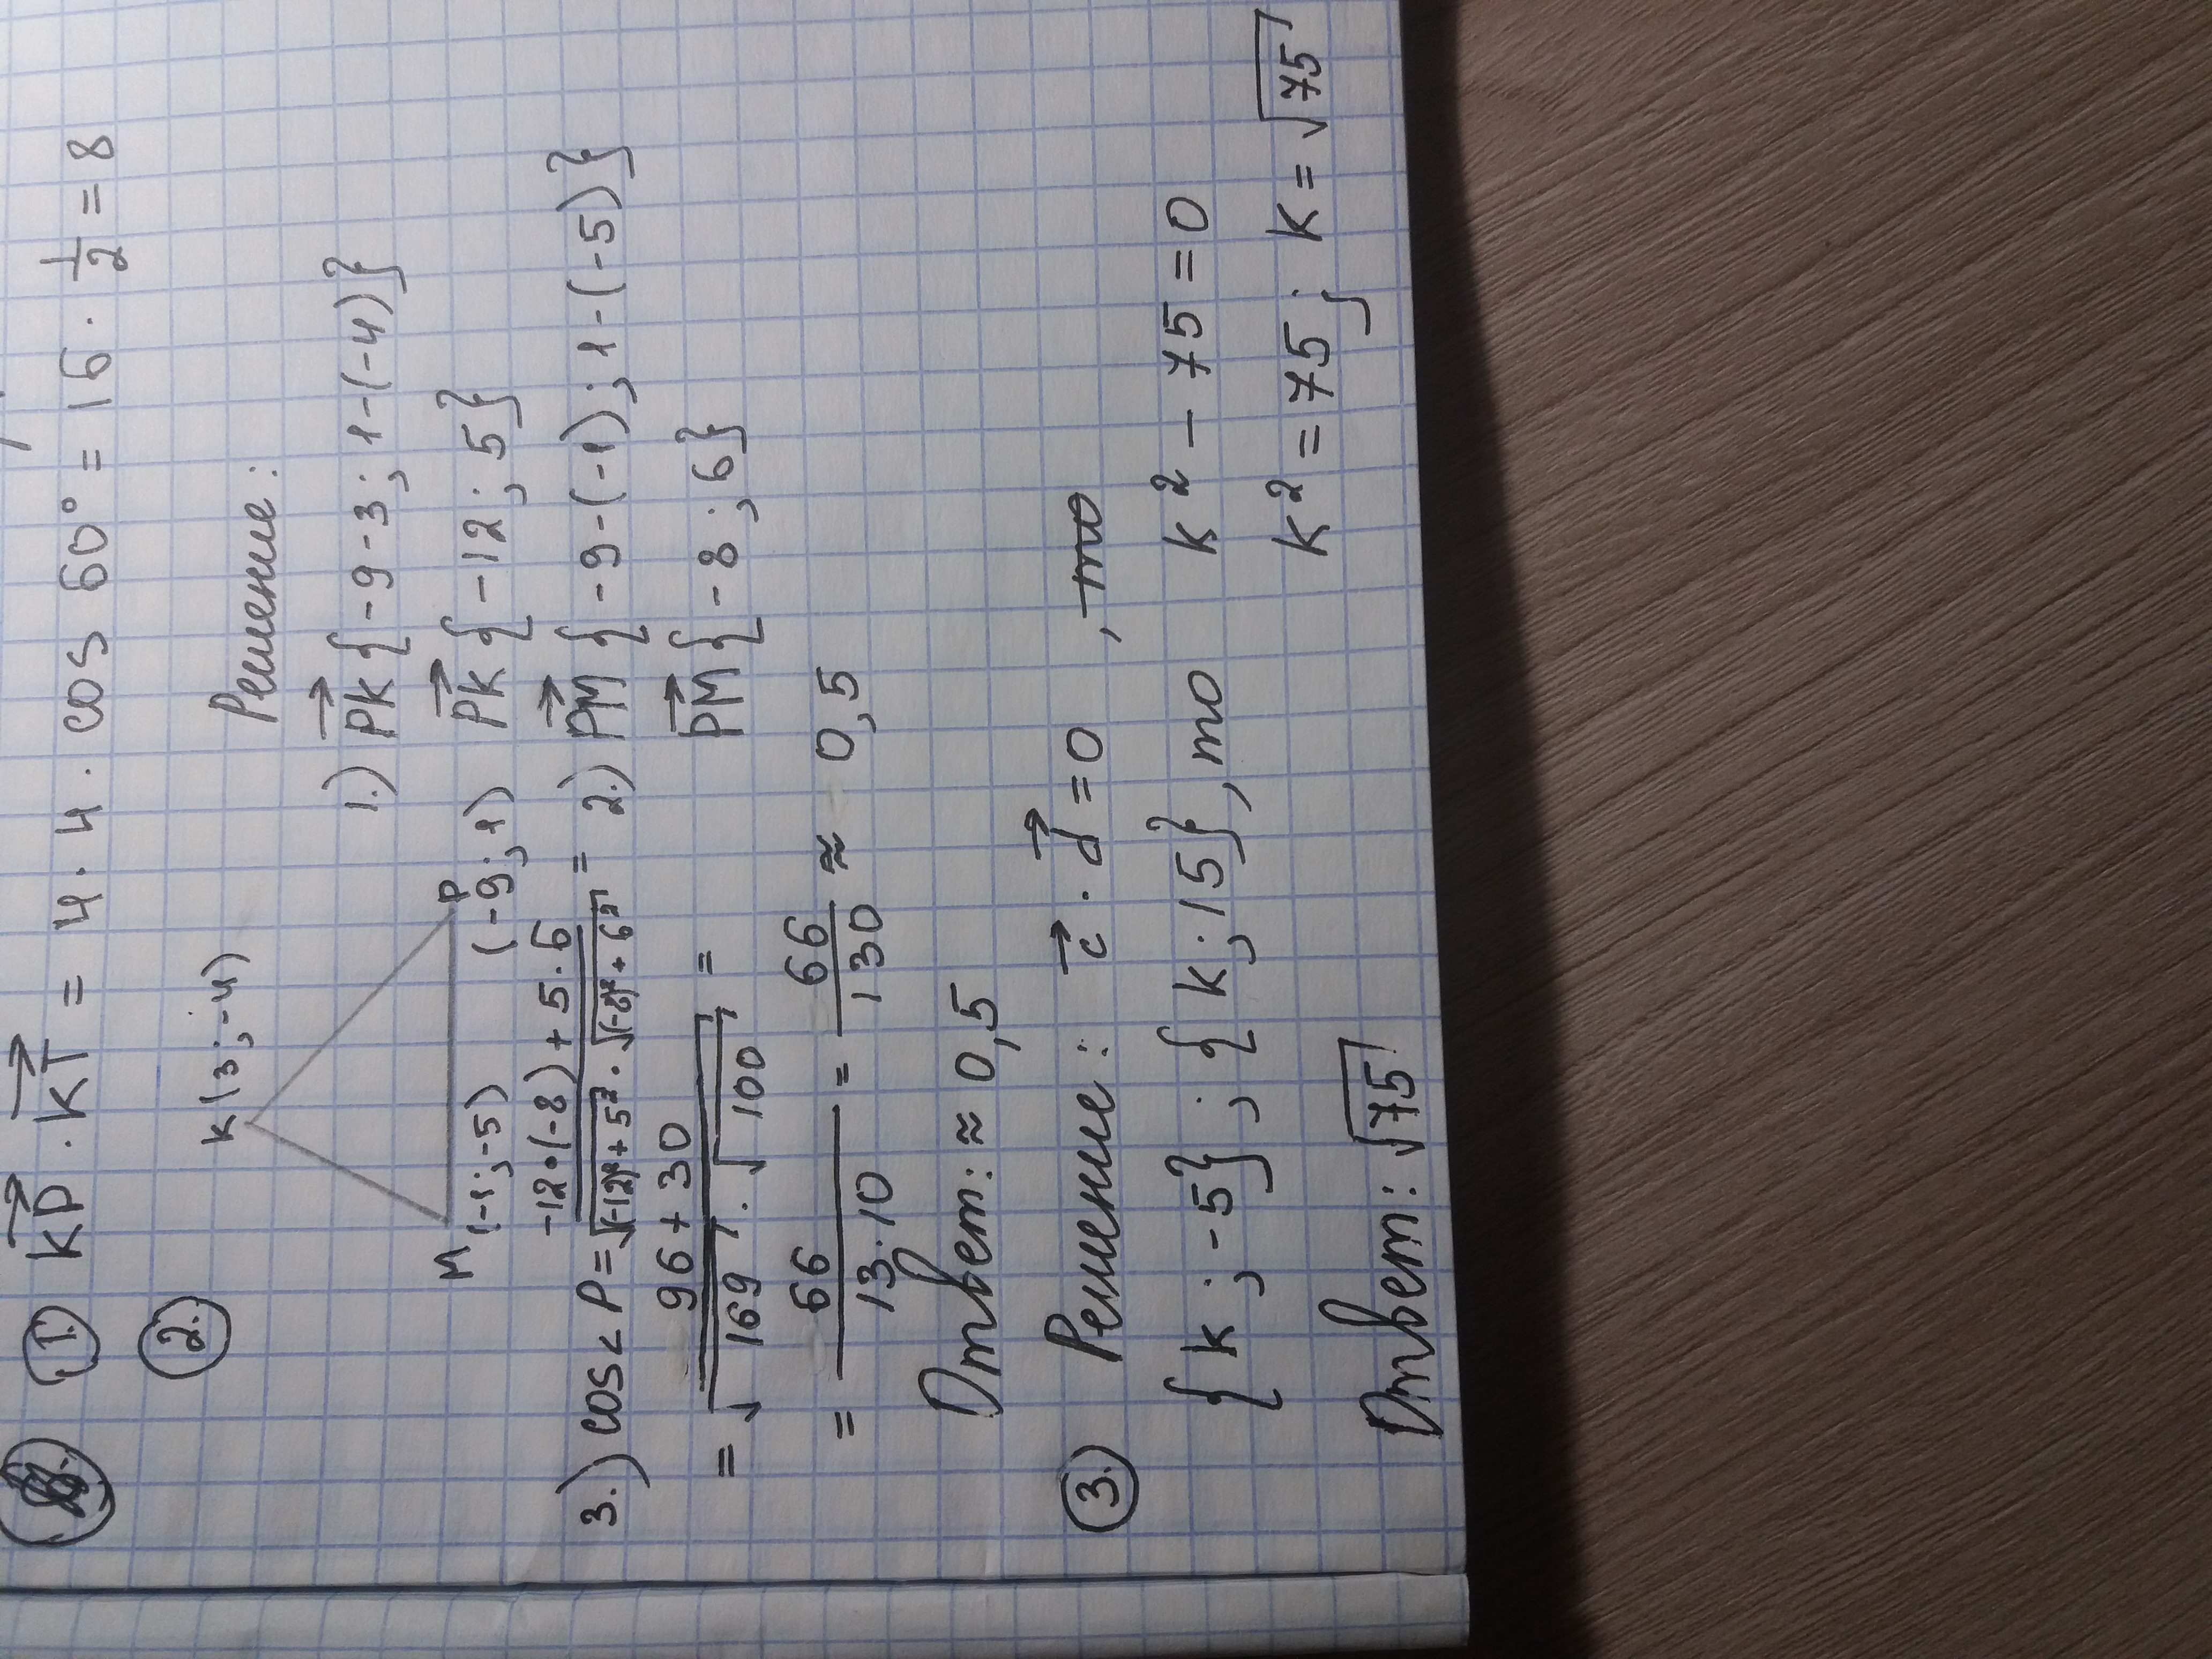 ① KP · KT = 4 · 4 · cos 60° = 16 · 1/2 = 8
②
Решение:
K(3;-4)
M(-1;-5)
P(-9;1)
1.) PK {-9-3; 1-(-4)}
PK {-12; 5}
2.) PM {-9-(-1); 1-(-5)}
PM {-8; 6}
3.) cos<P = (-12·(-8)+5·6)/(√(-12)²+5² · √(-8)²+6²) =
= (96+30)/(√169 · √100) =
= 66/(13·10) = 66/130 ≈ 0,5
Ответ: ≈ 0,5
③ Решение: c · d = 0, то
{k; -5}; {k; 15}, то k² - 75 = 0
k² = 75; k = √75
Ответ: √75